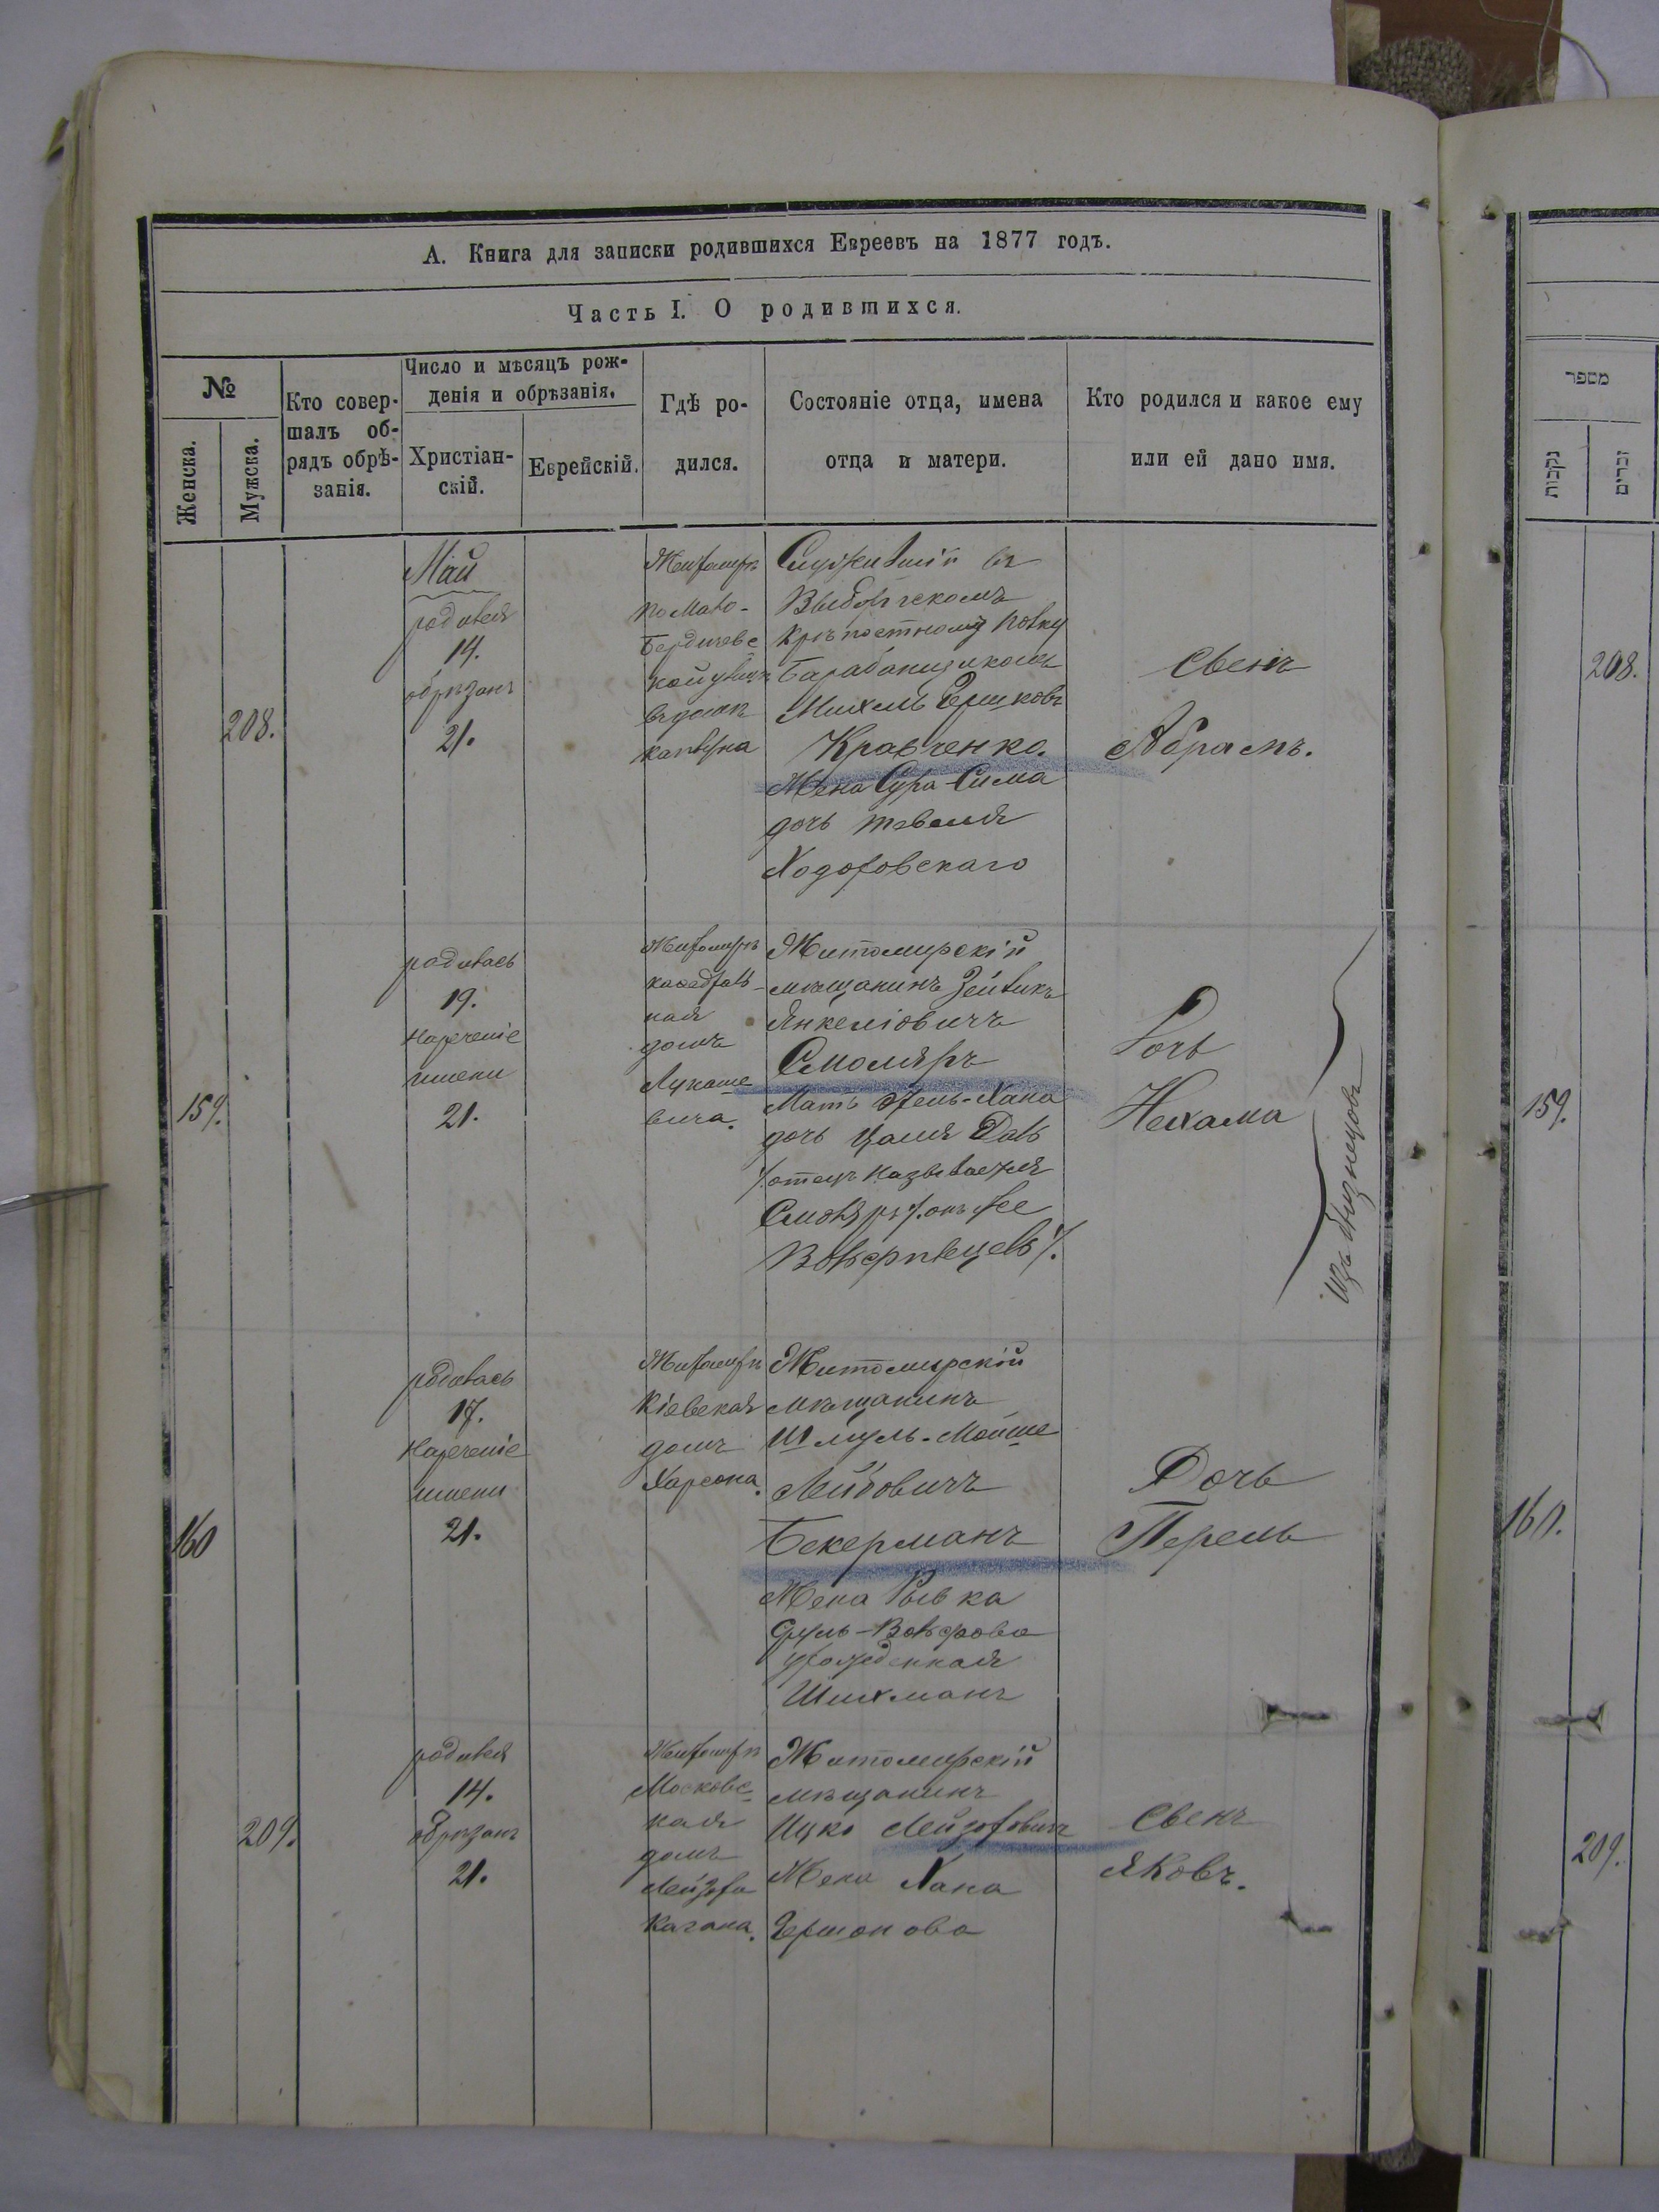 А. Книга для записки родившихся Евреевъ на 1877 годъ.
Часть I. О родившихся.
№
Женска.
Мужска.
Кто совер-
шалъ об-
рядъ обрѣ-
занія.
Число и мѣсяцъ рож-
денія и обрѣзанія.
Христіан-
скій.
Еврейскій.
Гдѣ ро-
дился.
Состояніе отца, имена
отца и матери.
Кто родился и какое ему
или ей дано имя.
208.
Май
родился
14.
обрѣзанъ
21.
Житомиръ
по Мало-
Бердичевс
кой улицѣ
въ домѣ
Служившій въ
Выборгскомъ
крѣпостному полку
Барабанщикомъ
Михель Гершковъ
Кравченко.
Жена Сура-Сима
дочь
Ходоровскаго
Свенъ
Абрамъ.
159.
родилась
19.
Нареченіе
имени
21.
Житомиръ
каѳедраль-
ная
домъ
Лукаше
вича.
Житомирскій
мѣщанинъ Зейликъ
Янкеліовичъ
Смоляръ
Мать Фель-Хана
дочь
/. отецъ называется
Смоляръ /. онъ же
Дочь
Нехама
160
родилась
17.
Нареченіе
имени
21.
Житомиръ
Кіевская
домъ
Харсона.
Житомирскій
мѣщанинъ
Шмуль-Мойше
Лейбовичъ
Бекерманъ
Жена Рывка
Сруль-Вольфова
урожденная
Шихманъ
Дочь
Перель
209.
родился
14.
обрѣзанъ
21.
Житомиръ
Московс-
кая
домъ
Лейзора
Кагана.
Житомирскій
мѣщанинъ
Ицко Лейзоровичъ
Жена Хана
Гершонова
Свенъ
Яковъ.
מספר
נקבות
זכרים
208.
159.
160.
209.